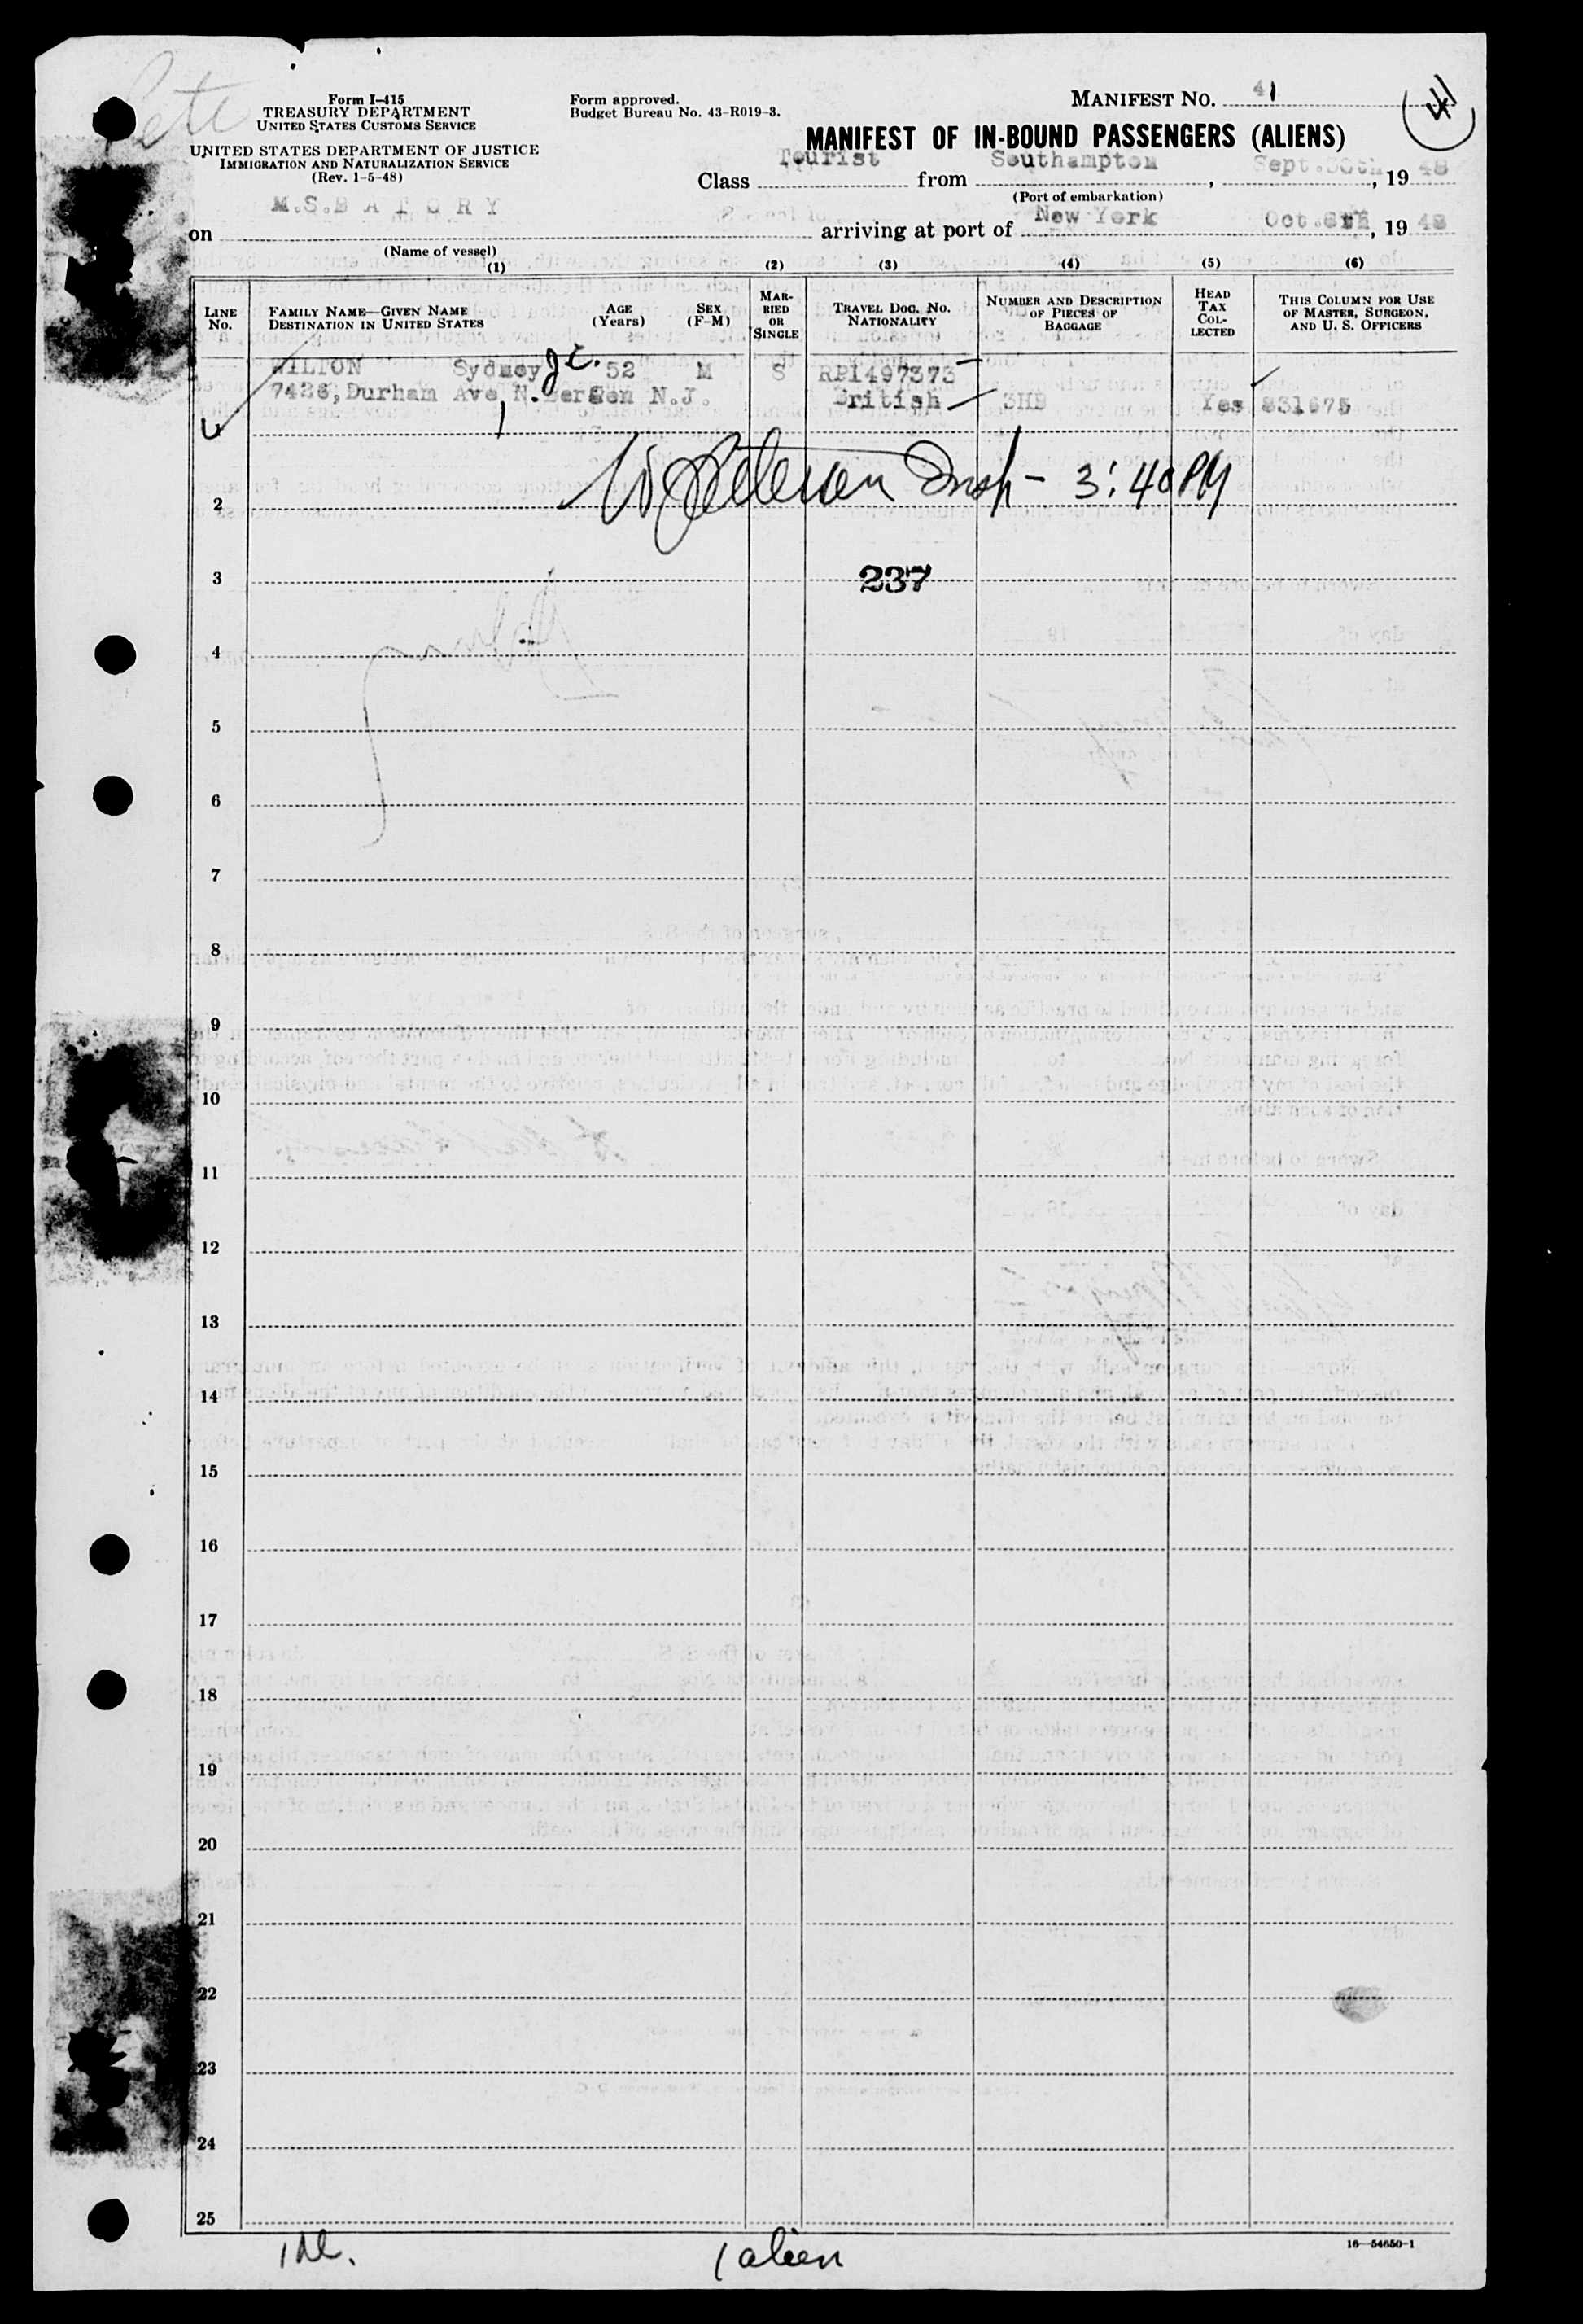 Form I-415
TREASURY DEPARTMENT
UNITED STATES CUSTOMS SERVICE
UNITED STATES DEPARTMENT OF JUSTICE
IMMIGRATION AND NATURALIZATION SERVICE
(Rev. 1-5-48)
Form approved.
Budget Bureau No. 43-R019-3.
MANIFEST NO. 41
MANIFEST OF IN-BOUND PASSENGERS (ALIENS)
Class Tourist from Southampton, Sept. 30th, 19 48
(Port of embarkation)
on M.S. BATORY arriving at port of New York Oct. 19 48
(Name of vessel)
(1) (2) (3) (4) (5) (6)
LINE NO. FAMILY NAME—GIVEN NAME DESTINATION IN UNITED STATES AGE (Years) SEX (F-M) MARRIED OR SINGLE TRAVEL DOC. NO. NATIONALITY NUMBER AND DESCRIPTION OF PIECES OF BAGGAGE HEAD TAX COLLECTED THIS COLUMN FOR USE OF MASTER, SURGEON, AND U. S. OFFICERS
WILTON Sydney 52 M S RP1497373
7426, Durham Ave, N. Bergen N.J. British 3HB Yes 831675
Insp - 3:40 PM
2
3 237
4
5
6
7
8
9
10
11
12
13
14
15
16
17
18
19
20
21
22
23
24
25
1 alien
16—54650-1